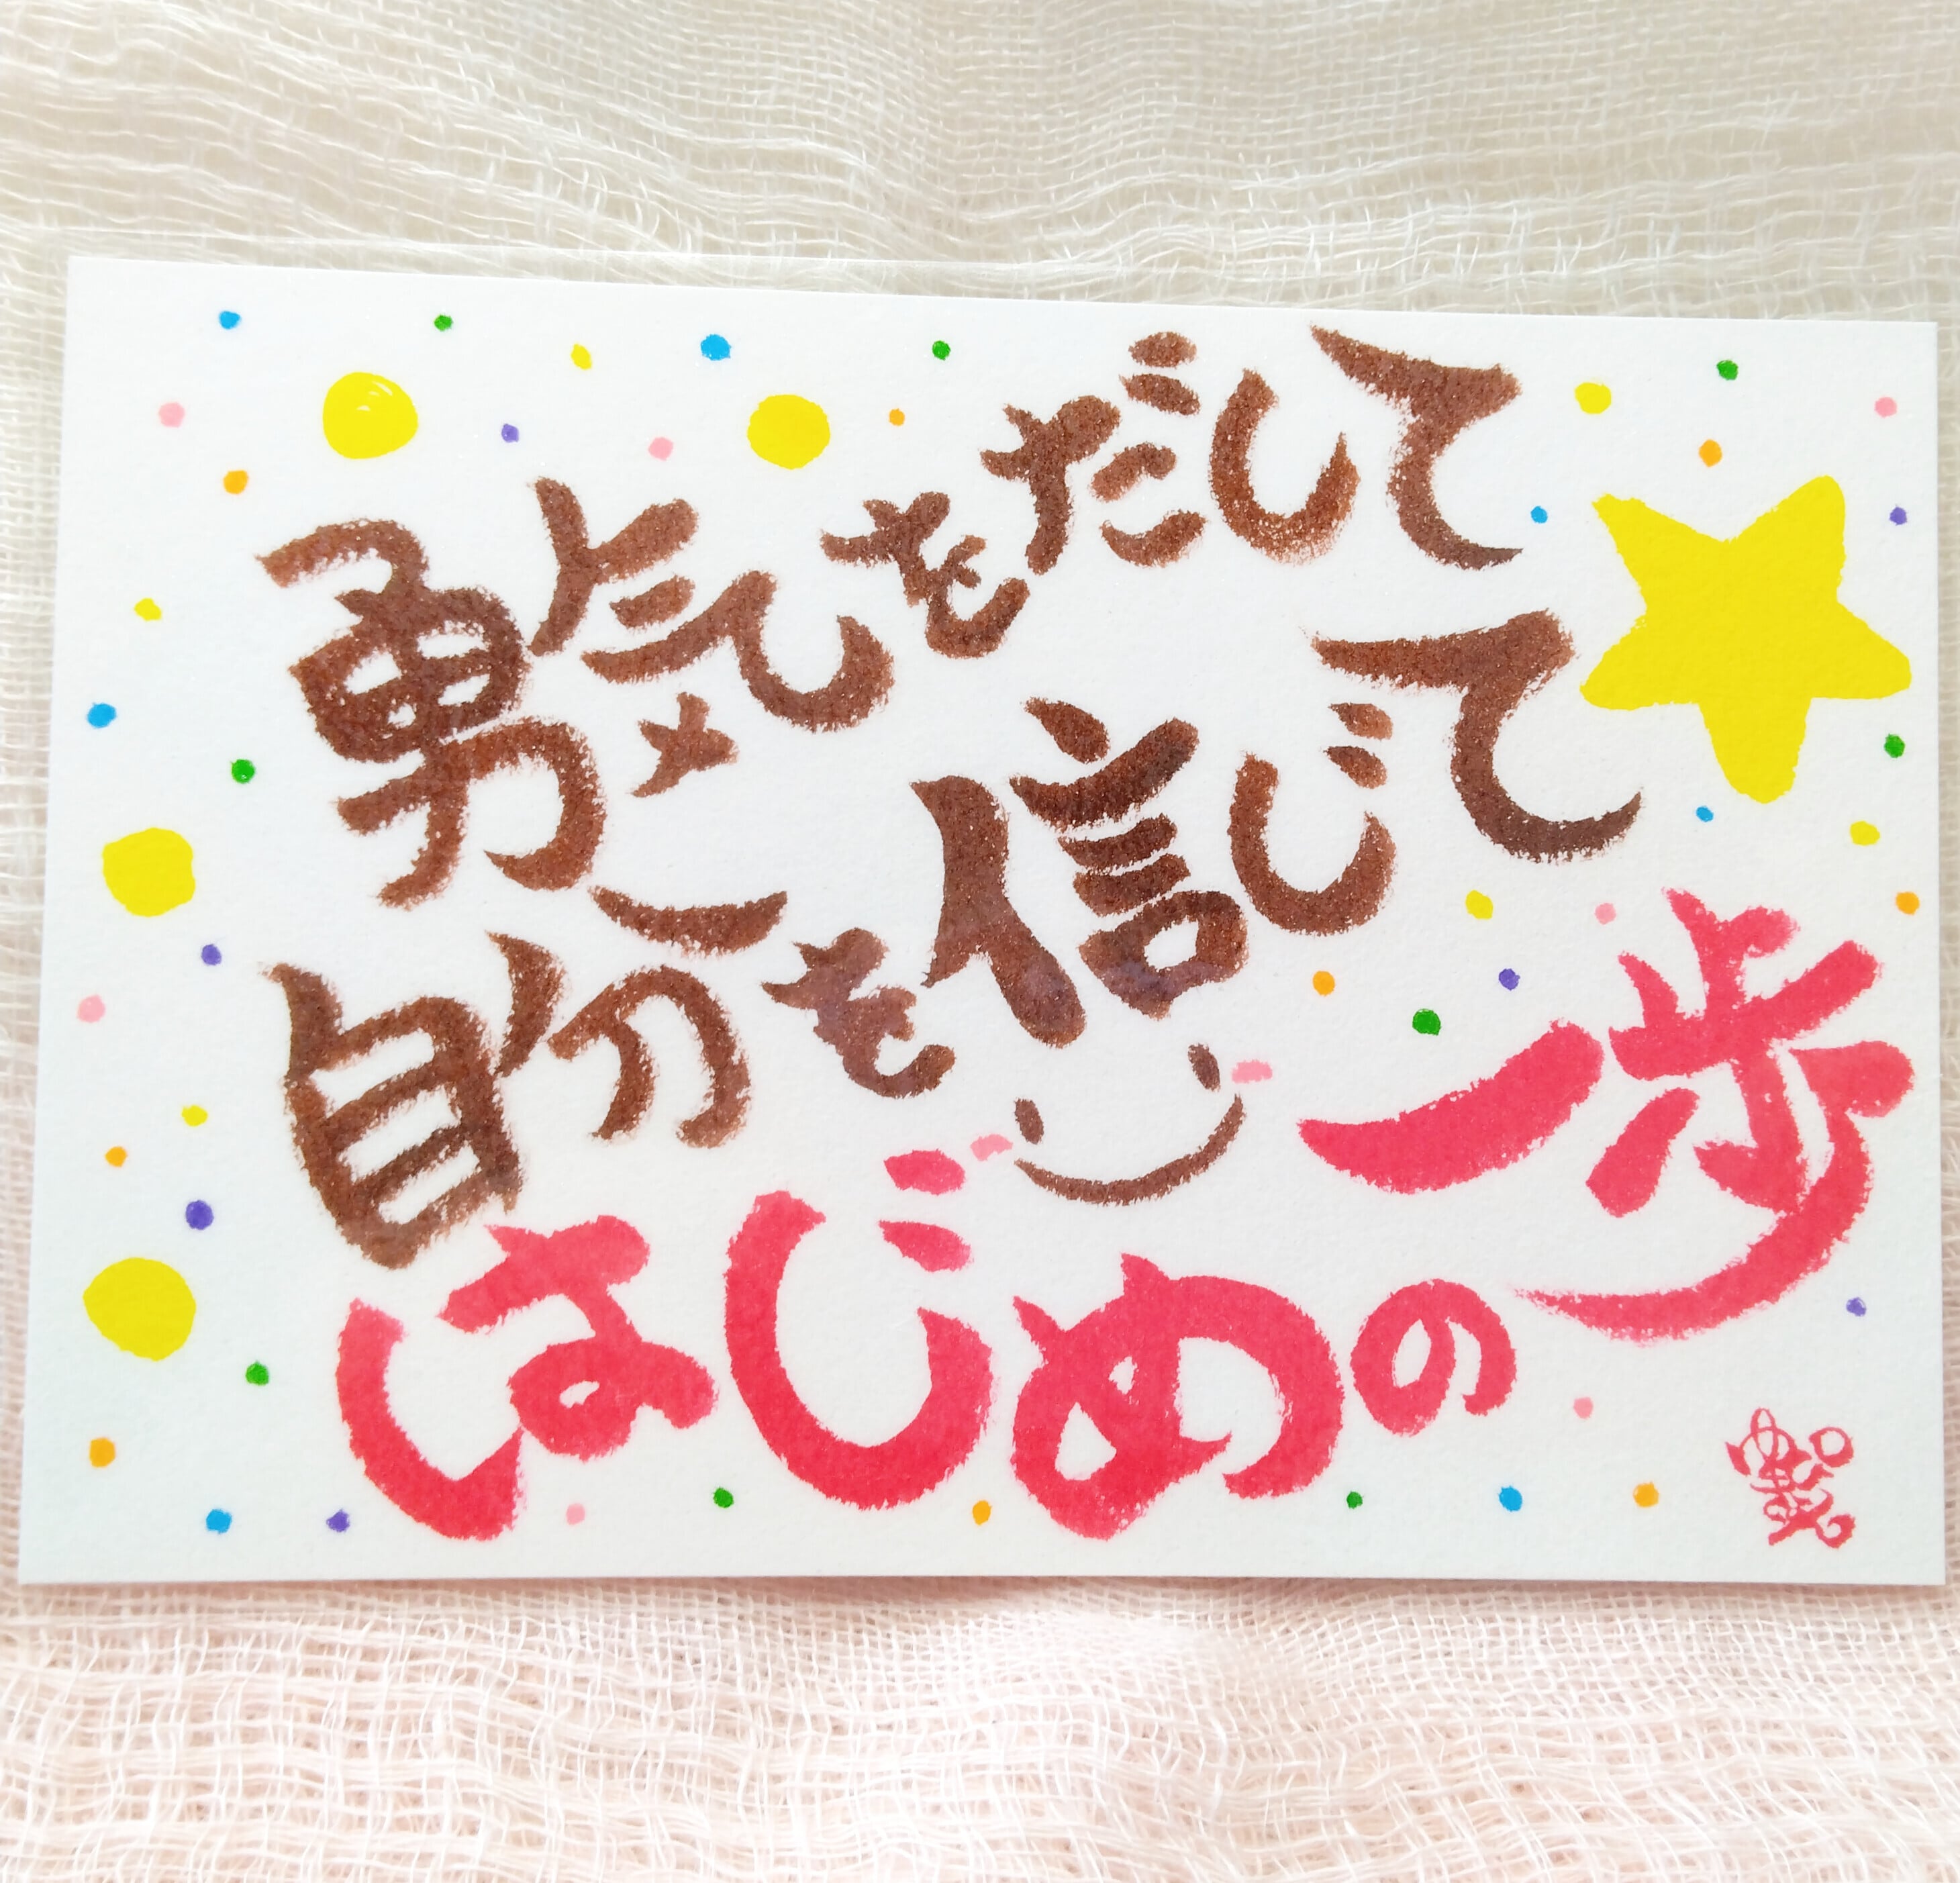 勇気をだして
自分を信じて
はじめの一歩